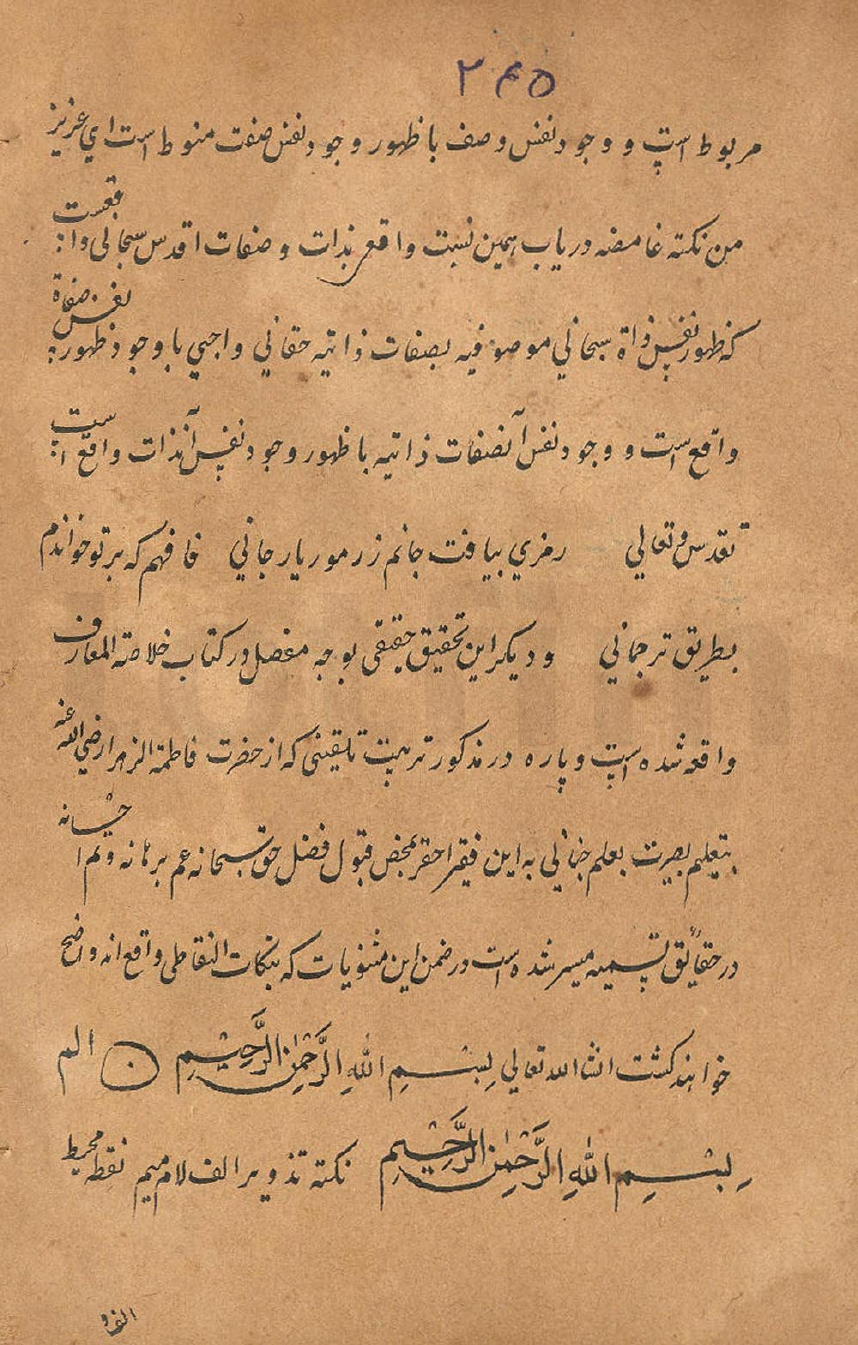 ۲۴۵
مربوط است و وجود نفس وصف با ظهور وجود نفس صفت منوط است اي عزيز
من نكته غامضه درياب همين نسبت واقعست بذات و صفات اقدس سبحاني وا:
كه ظهور نفس ذواة سبحاني موصوفيه بصفات ذاتيه حقاني واجبي با وجود ظهور: نفس صفاة
واقع است و وجود نفس آنصفات ذاتيه با ظهور وجود نفس آنذات واقع است:
تقدس و تعالي رمزي بيافت جانم زرمور يار جاني فافهم كه بر تو خواندم
بطريق ترجماني و ديكر اين تحقيق حقيقي بوجه مفصل در كتاب خلاصة المعارف
واقعه شده است و پاره در مذكور تربيت تلقيني كه از حضرت فاطمة الزهرا رضي الله عنه
بتعليم بصيرت بعلم جناني به اين فقير احقر بمحض قبول فضل حق سبحانه عم برهانه و تم احسانه
در حقايق تسميه ميسر شده است در ضمن اين مثنويات كه بنكات النقاطي واقع اند واضح
خواهند كشت انشاالله تعالي بِسْمِ اللهِ الرَّحْمٰنِ الرَّحِيْمِ الم
بِسْمِ اللهِ الرَّحْمٰنِ الرَّحِيْمِ نكته تذوير الف لام ميم نقطه محيط